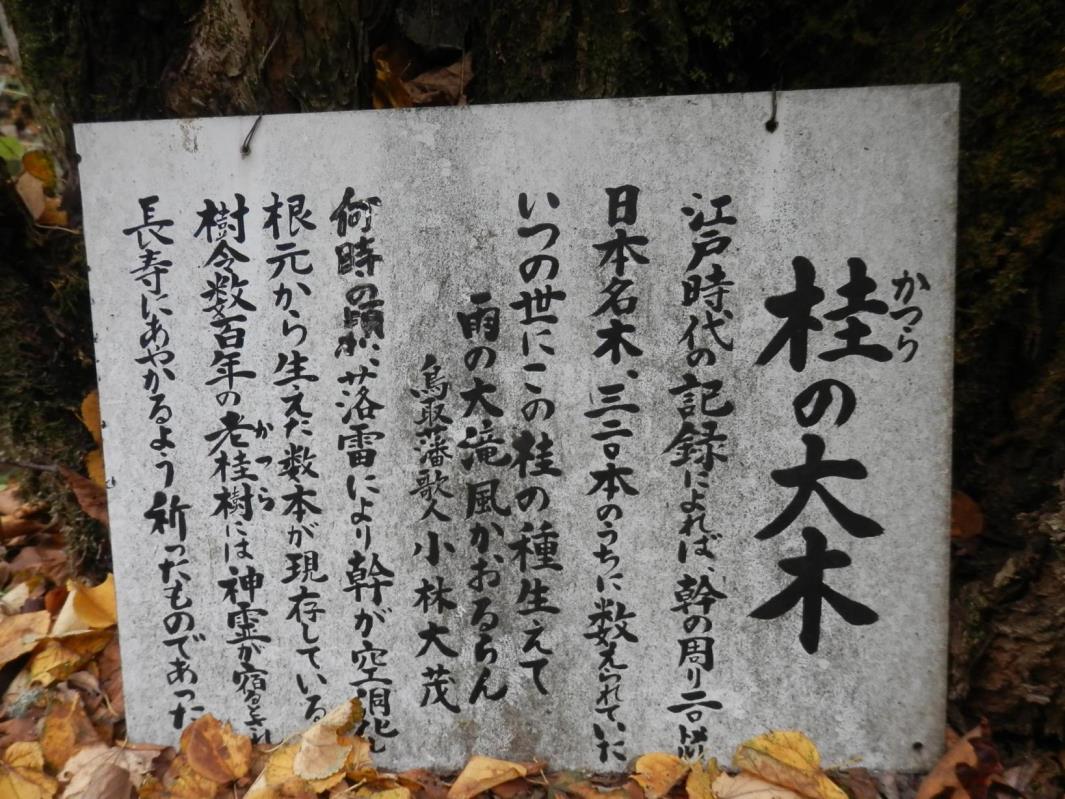 桂の大木
かつら
江戸時代の記録によれば、幹の周り二〇
日本名木、三二〇本のうちに数えられていた
いつの世にこの桂の種生えて
雨の大滝風かおるらん
鳥取藩歌人 小林大茂
何時の頃か、落雷により幹が空洞化
根元から生えた数本が現存している
樹令数百年の老桂樹には神霊が宿る
かつら
長寿にあやかるよう祈ったものであった